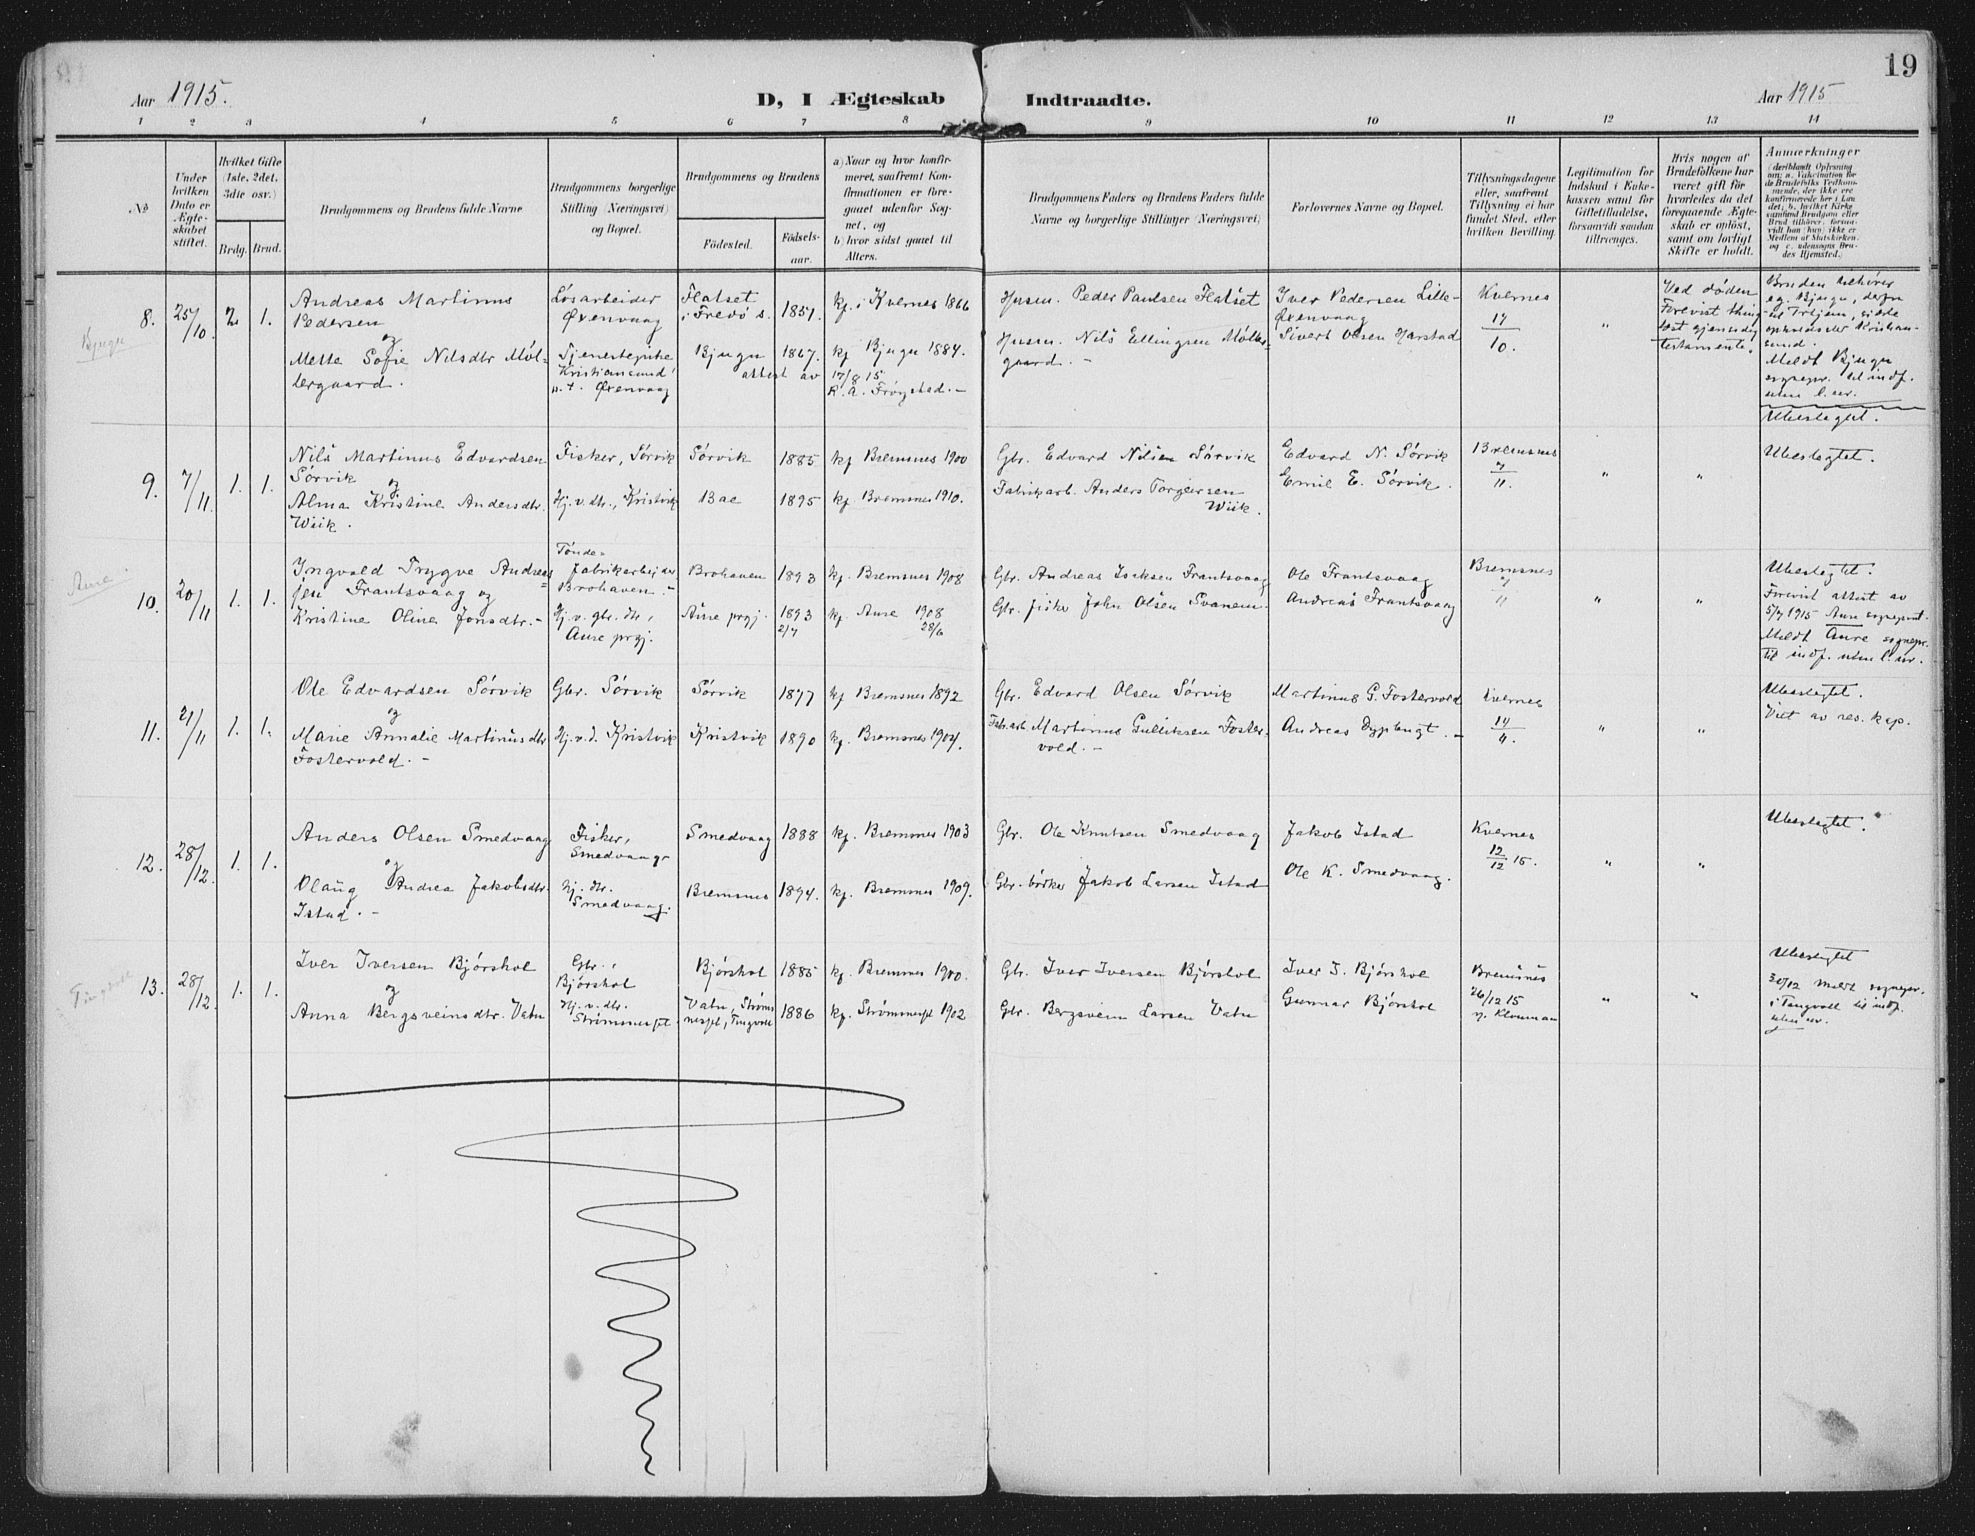 19
Aar 1915.
D, I Ægteskab Indtraadte.
Aar 1915
1 2 3 4 5 6 7 8 9 10 11 12 13 14
No
Under hvilken Dato er Ægteskabet stiftet.
Hvilket Gifte (1ste, 2det, 3die osv.)
Brdg. Brud.
Brudgommens og Brudens fulde Navne
Brudgommens borgerlige Stilling (Næringsvei) og Bopæl.
Brudgommens og Brudens
Fødested. Fødselsaar.
a) Naar og hvor konfirmeret, saafremt Konfirmationen er foregaaet udenfor Sognet, og
b) hvor sidst gaaet til Alters.
Brudgommens Faders og Brudens Faders fulde Navne og borgerlige Stillinger (Næringsvei)
Forlovernes Navne og Bopæl.
Tillysningsdagene eller, saafremt Tillysning ei har fundet Sted, efter hvilken Bevilling.
Legitimation for Indskud i Enkekassen samt for Giftetilladelse, forsaavidt saadan tiltrænges.
Hvis nogen af Brudefolkene har været gift før hvorledes da det foregaaende Ægteskab er opløst, samt om lovligt Skifte er holdt.
Anmærkninger
Bjugn
8. 25/10 2. 1.
Andreas Martinus
Pedersen
og
Mette Sofie Nilsdtr Møl-
lergaard.
Løsarbeider
Øxenvaag
Tjenestepike
Kristiansund
p.t. Øxenvaag
Flatset
i Fredø s. 1851.
Bjugn 1867.
kf. i Kvernes 1866
kf Bjugn 1884.
attest av 17/8 15
R. A. Frøystad.-
Husm. Peder Paulsen Flatset
Husm. Nils Ellingsen Møller-
gaard. -
Iver Pedersen Lille-
Øxenvaag
Sivert Olsen Harstad
Kvernes
17/10.
"
Ved døden
Forevist thing-
læst gjensidig
testamente.
Meldt Bjugn
sognepr. til indf.
uten l. nr.
Ubeslegtet.
9. 7/11 1. 1.
Nils Martinus Edvardsen
Sørvik
og
Alma Kristine Andersdtr.
Wiik.
Fisker, Sørvik
Hj. v. dtr., Kristvik
Sørvik 1885
Bae 1895
kf Bremsnes 1900
kf. Bremsnes 1910.
Gbr. Edvard Nilsen Sørvik
Fabrikarb. Anders Torgersen
Wiik.
Edvard N. Sørvik
Emil E. Sørvik.
Bremsnes
7/11.
" "
Ubeslegtet.
Aure.
10. 20/11 1. 1.
Ingvald Trygve Andreas-
sen Frantsvaag og
Kristine Oline Jonsdtr.-
Tønde-
fabrikarbeider
Brohaven.-
Hj. v. gbr. dtr,
Aure prgj.
Brohaven 1893
Aure prgj. 1893
2/7
kf. Bremsnes 1908
kf. Aure 1908
28/6
Gbr. Andreas Isaksen Frantsvaag
Gbr. fisker John Olsen Svanem.
Ole Frantsvaag
Andreas Frantsvaag
Bremsnes
7/11
" "
Ubeslegtet.
Forevist attest av
5/7 1915 Aure sogneprest.
Meldt Aure sognepr.
til indf. uten l. nr.
11. 21/11 1. 1.
Ole Edvardsen Sørvik
og
Marie Annalie Martinusdtr
Fostervold. -
Gbr. Sørvik
Hj. v. d. Kristvik
Sørvik 1877
Kristvik 1890
kf Bremsnes 1892
kf. Bremsnes 1904.
Gbr. Edvard Olsen Sørvik
Fabr. arb. Martinus Gulliksen Foster-
vold. -
Martinus G. Fostervold
Andreas Dyplengt. -
Kvernes
14/11.
" "
Ubeslegtet.
Viet av res. kap.
12. 28/12. 1. 1.
Anders Olsen Smedvaag
og
Olaug Andrea Jakobsdtr.
Istad. -
Fisker,
Smedvaag
Hj. dtr.
Smedvaag.
Smedvaag 1888
Bremsnes 1894.
kf. Bremsnes 1903
kf. Bremsnes 1909.
Gbr. Ole Knutsen Smedvaag
Gbr. bødker Jakob Larsen Istad
Jakob Istad
Ole K. Smedvaag.
Kvernes
12/12 15.
" "
Ubeslegtet.
Tingvoll
13. 28/12 1. 1.
Iver Iversen Bjørshol
og
Anna Bergsveinsdtr. Vatn
Gbr.,
Bjørshol
Hj. v. dtr.
Strømmesgt
Bjørshol 1885
Vatn, Strøms
nesgt, Tingvoll 1886
kf. Bremsnes 1900.
kf. Strømmesgt 1902
Gbr. Iver Iversen Bjørshol
Gbr. Bergsvein Larsen Vatn
Iver I. Bjørshol
Gunnar Bjørshol
Bremsnes
26/12 15
" "
Ubeslegtet
30/12 meldt sognepr.
i Tingvoll til indf.
uten nr.